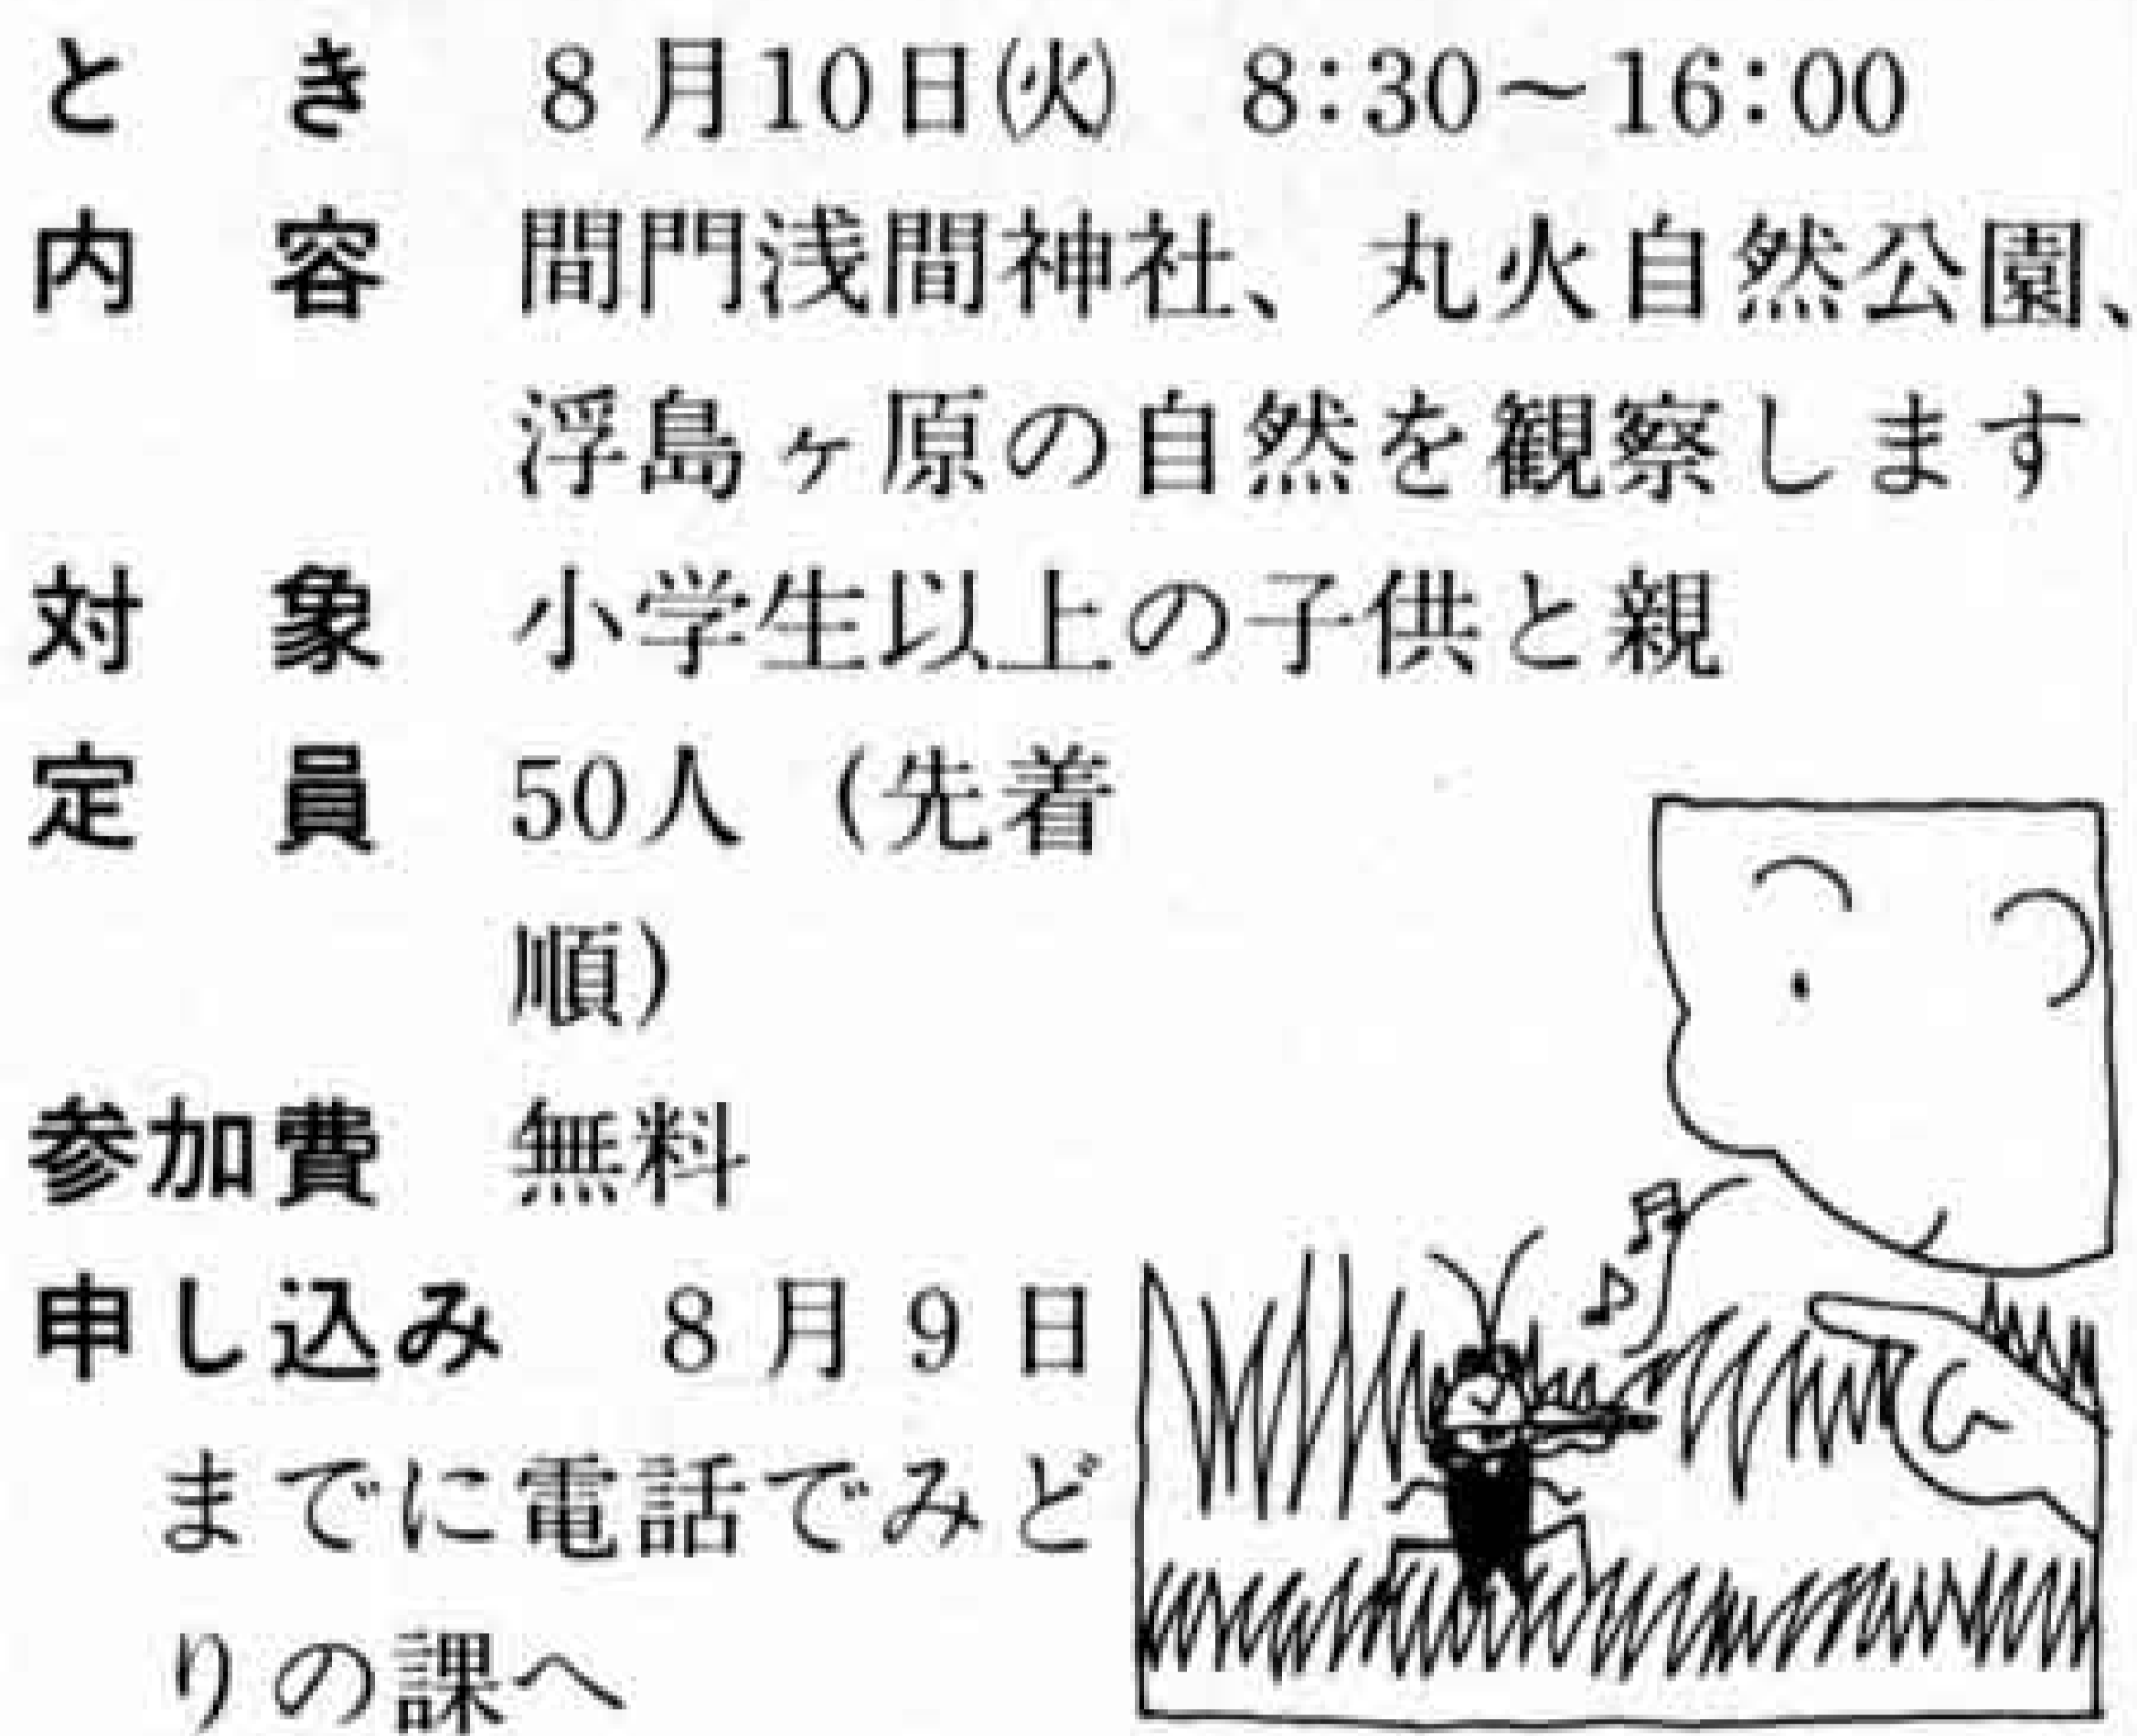 とき 8月10日㈫ 8:30～16:00
内容 間門浅間神社、丸火自然公園、
浮島ヶ原の自然を観察します
対象 小学生以上の子供と親
定員 50人（先着
順）
参加費 無料
申し込み 8月9日
までに電話でみど
りの課へ